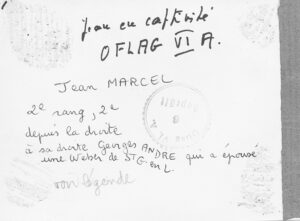 Jean en captivité
OFLAG VI A.
Jean MARCEL
2e rang, 2e
depuis la droite
à sa droite Georges ANDRE qui a épousé
une Weber de St G. en L.
voir légende